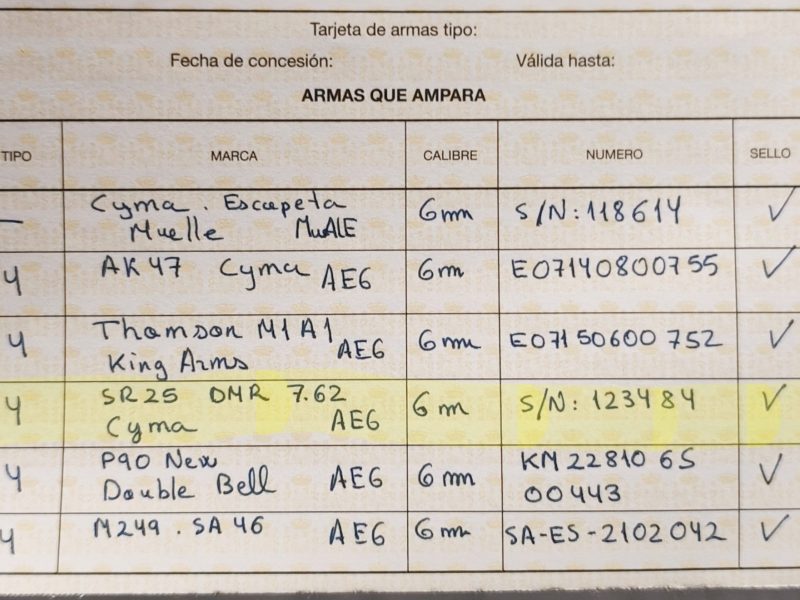 Tarjeta de armas tipo:
Fecha de concesión: Válida hasta:
ARMAS QUE AMPARA
TIPO MARCA CALIBRE NUMERO SELLO
Cyma . Escopeta 6mm S/N: 118614 ✓
Muelle MuAlE
4 AK 47 Cyma AE6 6m E07140800755 ✓
4 Thomson M1A1 AE6 6mm E07150600752 ✓
King Arms
4 SR25 DMR 7.62 6m S/N: 123484 ✓
Cyma AE6
4 P90 New AE6 6mm KM 22810 65 ✓
Double Bell 00443
4 M249 . SA 46 AE6 6mm SA-ES-2102042 ✓